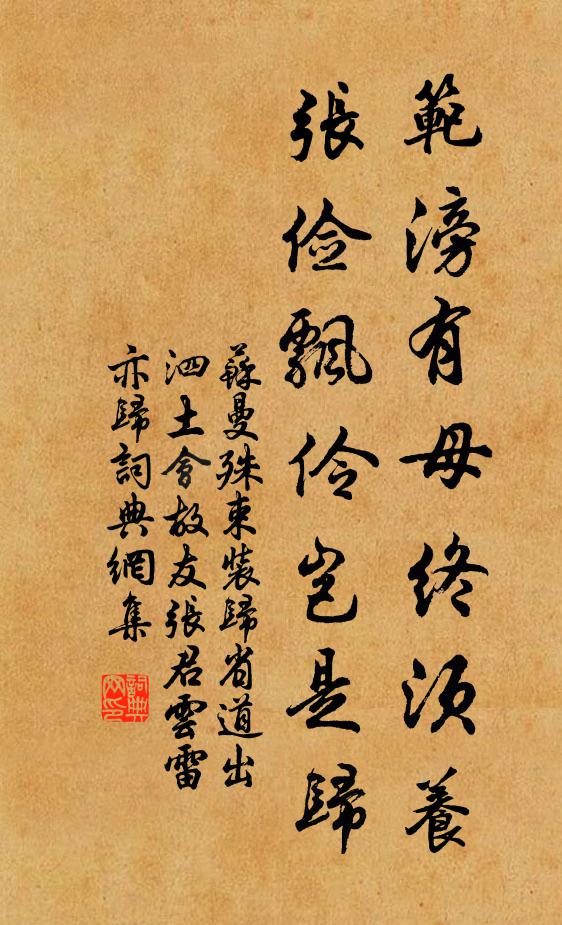 範滂有母終須養
張儉飄伶豈是歸
蘇曼殊束裝歸省道出
泗土會故友張君雲雷
亦歸詞典網集
詞典網印